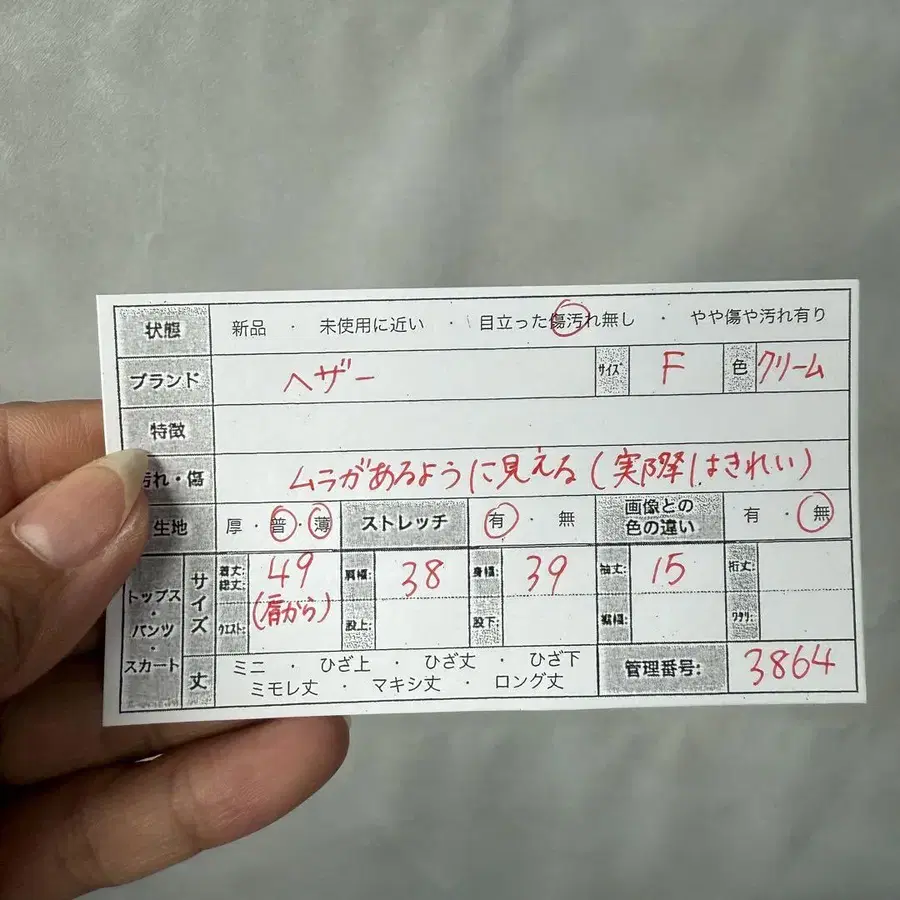 状態 新品 ・ 未使用に近い ・ 目立った傷汚れ無し ・ やや傷や汚れ有り
ブランド ヘザー サイズ F 色 クリーム
特徴
汚れ・傷 ムラがあるように見える(実際はきれい)
生地 厚・普・薄 ストレッチ 有 ・ 無 画像との色の違い 有 ・ 無
トップス・パンツ・スカート サイズ 着丈:総丈: 49(肩から) 肩幅: 38 身幅: 39 袖丈: 15 裄丈:
ウエスト: 股上: 股下: 裾幅: ワタリ:
丈 ミニ ・ ひざ上 ・ ひざ丈 ・ ひざ下
ミモレ丈 ・ マキシ丈 ・ ロング丈
管理番号: 3864